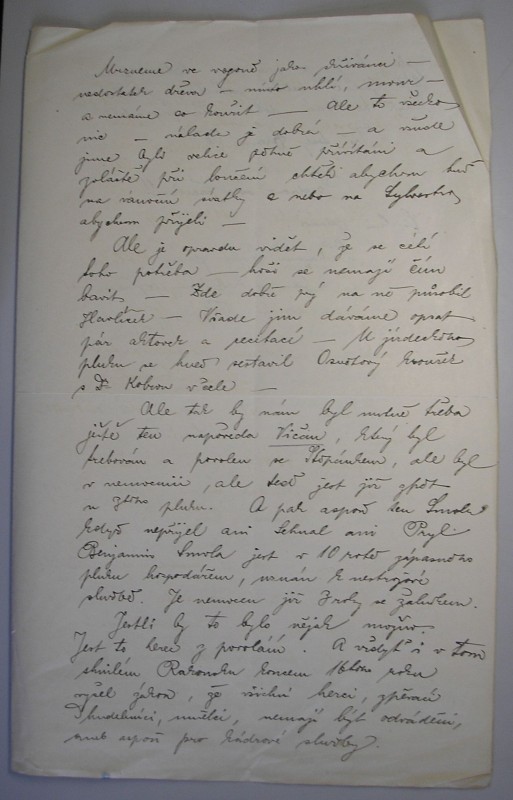 Mrzneme ve vagoně jako skřivánci —
nedostatek dřeva — uhlí, mour —
a nemáme co kouřit — Ale to všecko
nic — nálada je dobrá — a všude
jsme byli velice pěkně přivítáni a
zvláště při loučení chtěli abychom buď
na vánoční svátky a nebo na Sylvestra
abychom přijeli —
Ale je opravdu vidět, že se cítí
toho potřeba — hoši se nemají čím
bavit — Zde dobře prý na ně působil
Havlíček — Všade jim dáváme opsat
pár aktovek a recitací — U jízdeckého
pluku se hned sestavil Osvětový kroužek
s Dr Kobrou v čele —
Ale tak by nám byl nutně třeba
ještě ten nápověda Vičan, který byl
trebován a povolen se Štěpánkem, ale byl
v nemocnici, ale teď jest již zpět
u pluku. A pak aspoň ten Smola
když nepřijel ani Sehnal ani Pryl.
Benjamin Smola jest v 10 rotě zápasného
pluku hospodářem, uznán k nestrojové
službě. Je nemocen již 3 roky se žaludkem.
Jestli by to bylo nějak možno.
Jest to herec z povolání. A vždyť i v tom
shnilém Rakousku koncem 16tého roku
vyšel zákon, že všichni herci, zpěváci
hudebníci, umělci, nemají být odváděni,
aneb aspoň pro kádrové služby.